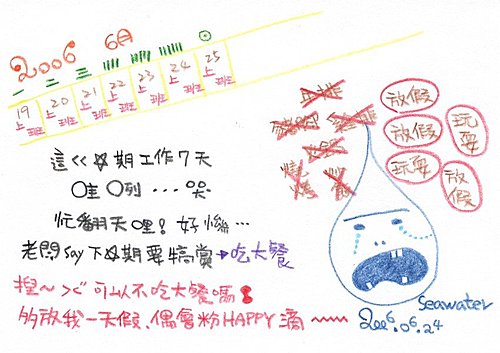 2006 6月
一 二 三 ⊙
19 20 21 22 23 24 25
上班 上班 上班 上班 上班 上班 上班
這ㄍ☆期工作7天
○哇 ○列...哭
忙翻天哩!好慘...
老闆say下☆期要犒賞→吃大餐
捏~><可以不吃大餐嗎!
多放我一天假、偶會粉HAPPY滴~~~~
放假
放假
玩耍
玩耍
放假
seawater
2006.06.24